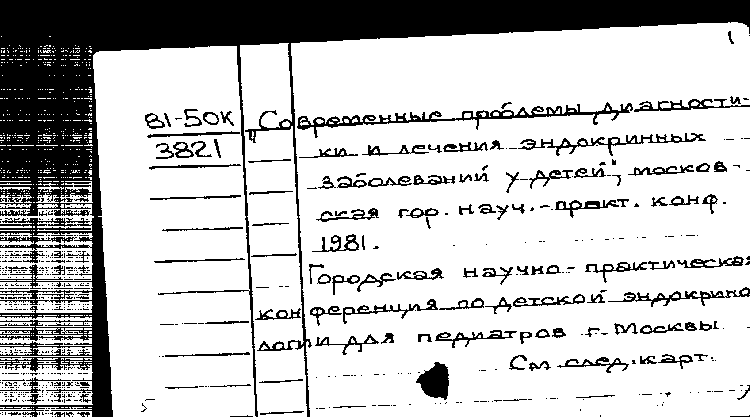 1
81-50К „Современные проблемы диагности-
3821 ки и лечения эндокринных
заболеваний у детей", москов-
ская гор. науч.-практ. конф.
1981.
Городская научно-практическая
конференция по детской эндокрино
логии для педиатров г. Москвы
См след. карт.